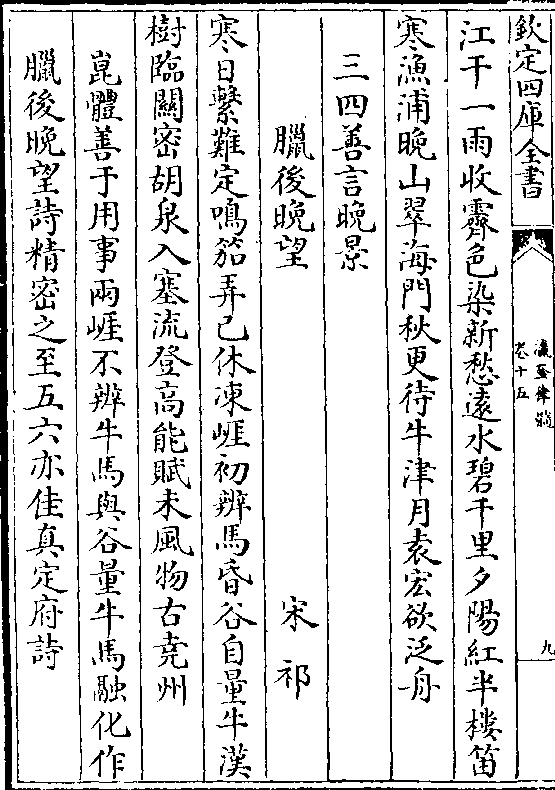 欽定四庫全書
瀛奎律髓
卷十五
九
江干一雨收霽色染新愁遠水碧千里夕陽紅半樓笛
寒漁浦晚山翠海門秋更待牛津月袁宏欲泛舟
三四善言晚景
臘後晚望
宋祁
寒日繫難定鳴笳弄已休凍崕初辨馬昏谷自量牛漢
樹臨關密胡泉入塞流登高能賦未風物古堯州
崑體善于用事兩崕不辨牛馬與谷量牛馬融化作
臘後晚望詩精密之至五六亦佳真定府詩